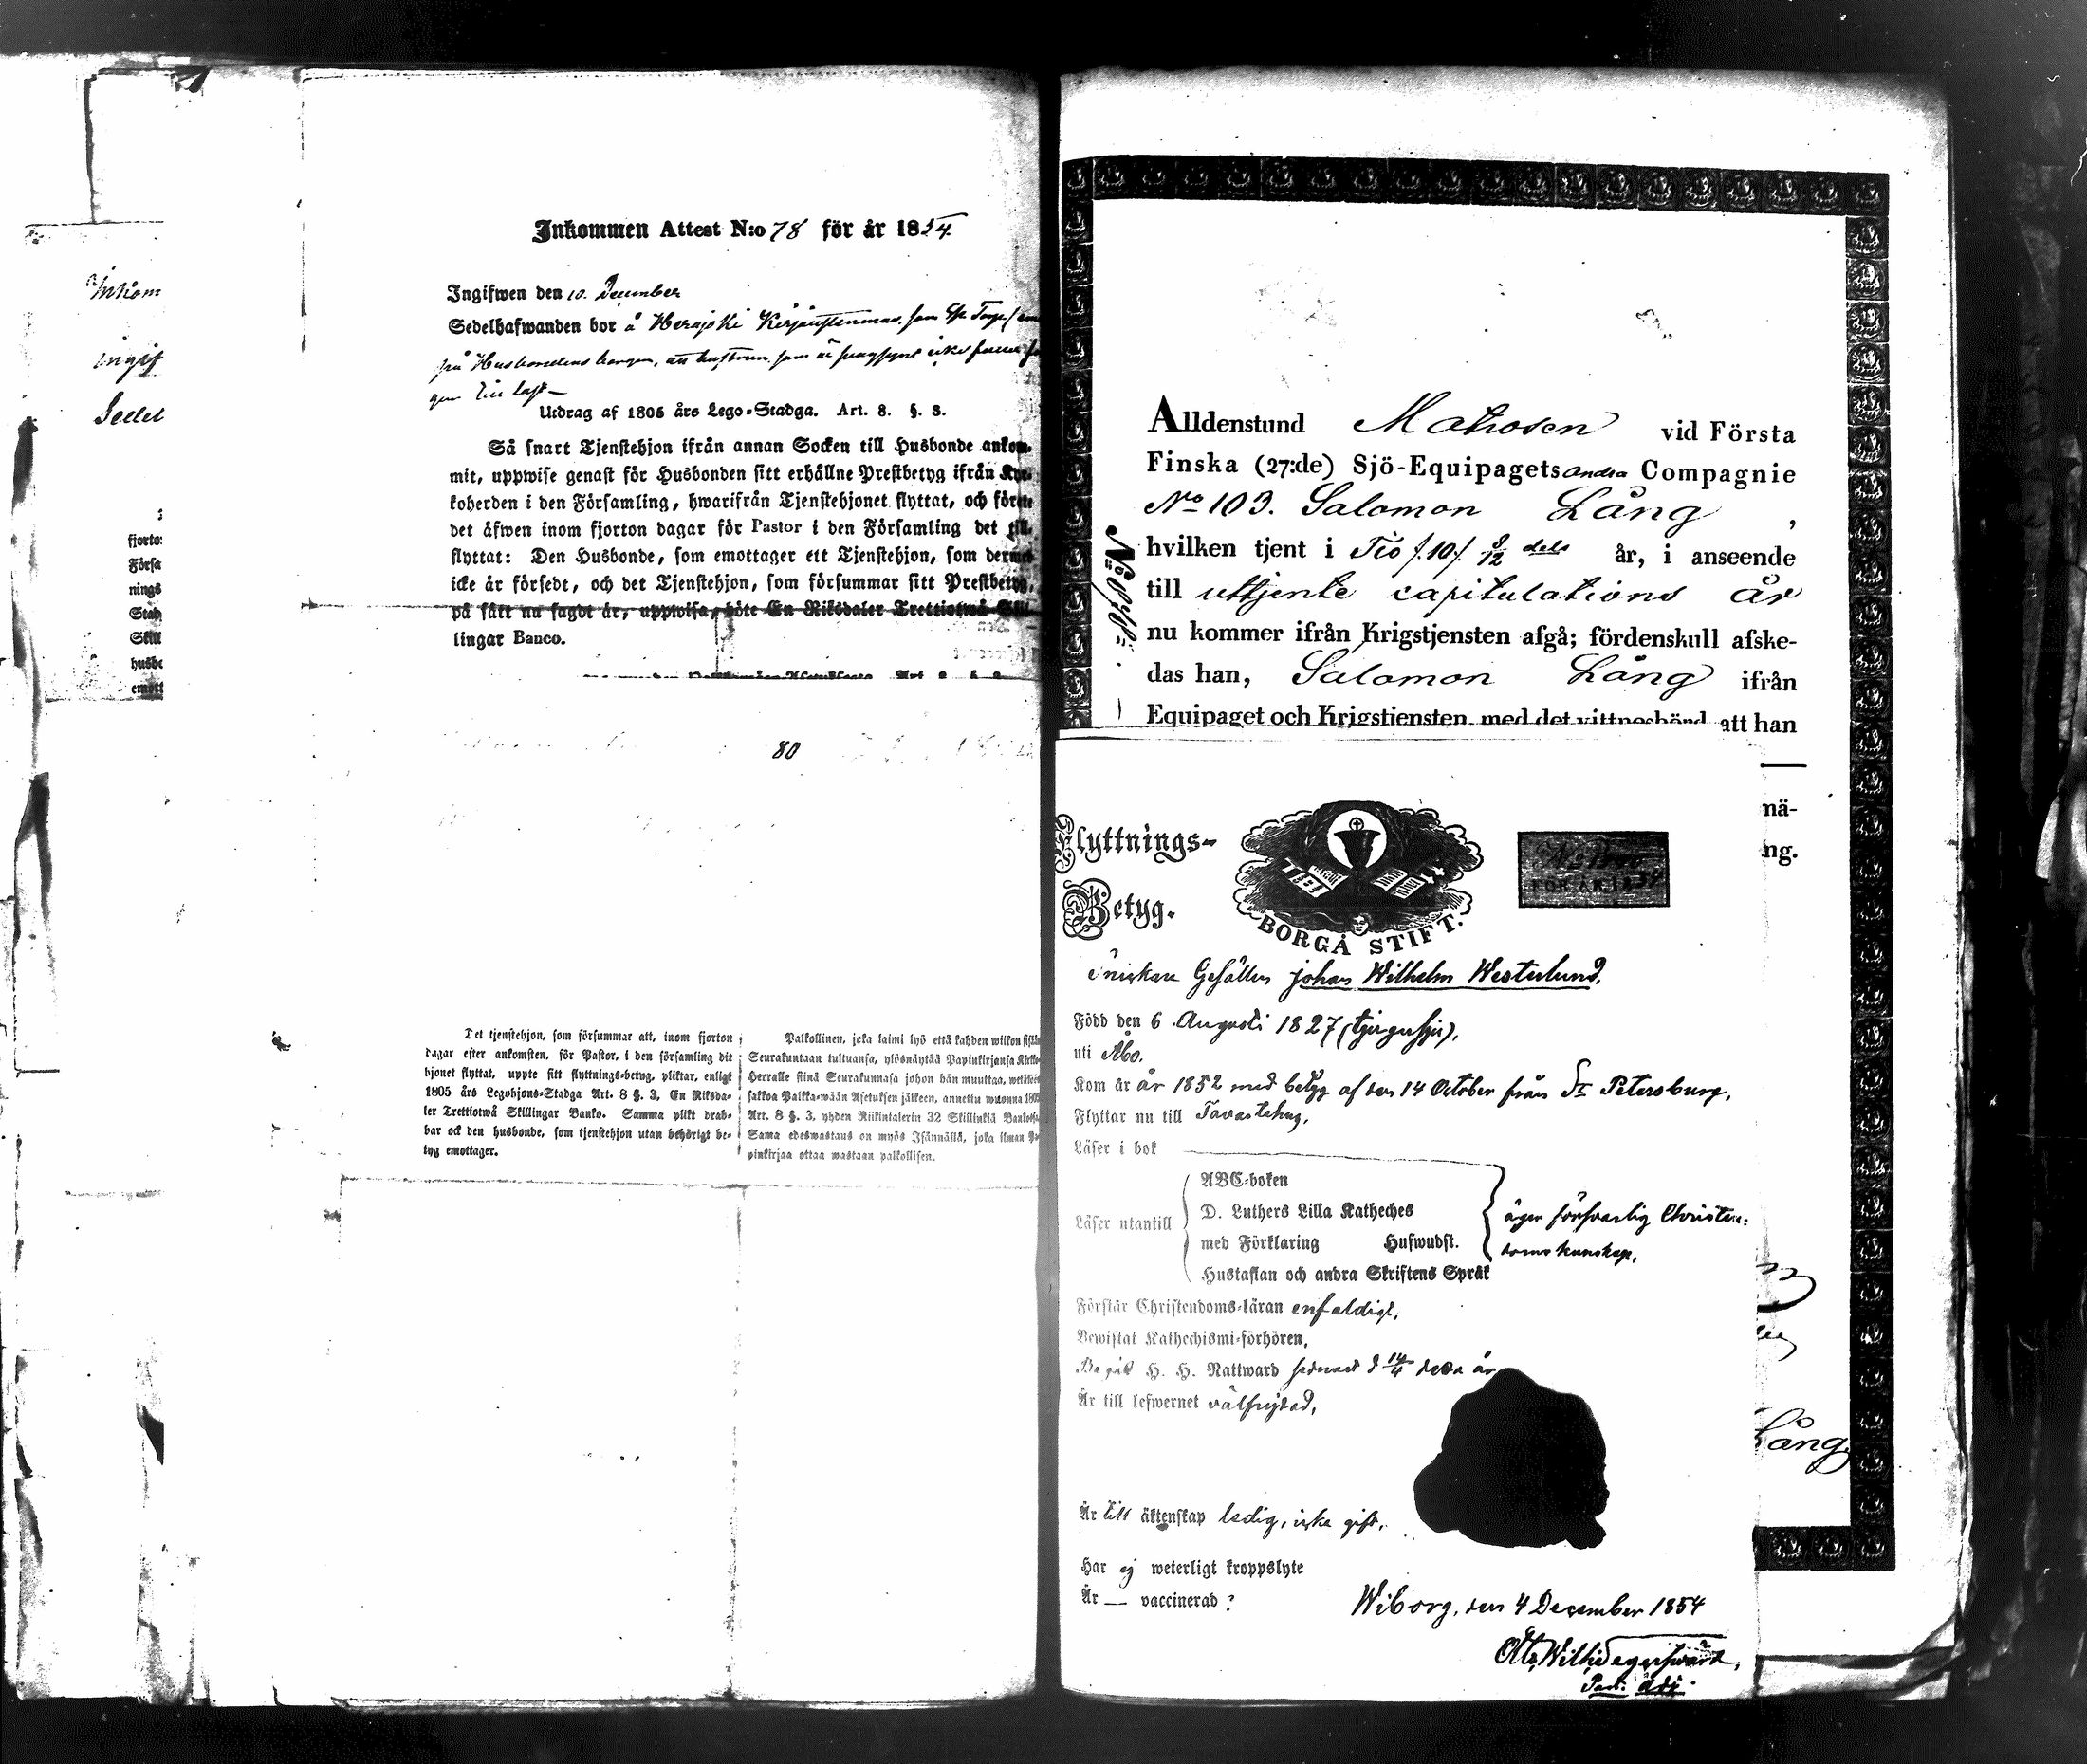 Inkom
ingif
Sedel
fjorto
Förfa
nings
Stad
Skill
husbo
emott
Inkommen Attest N:o 78 för år 1854.
Ingifwen den 10. December
Sedelhafwanden bor å Herajoki
på Husbondens
Utdrag af 1805 års Lego-Stadga. Art. 8. §. 3.
Så snart Tjenstehjon ifrån annan Socken till Husbonde ankom-
mit, uppwise genast för Husbonden sitt erhållne Prestbetyg ifrån Kyr-
koherden i den Församling, hwarifrån Tjenstehjonet flyttat, och förete
det äfwen inom fjorton dagar för Pastor i den Församling det till-
flyttat: Den Husbonde, som emottager ett Tjenstehjon, som dermed
icke är försedt, och det Tjenstehjon, som försummar sitt Prestbetyg,
på sätt nu sagdt är, uppwisa, böte En Riksdaler Trettiotwå Skil-
lingar Banco.
80
Det tjenstehjon, som försummar att, inom fjorton
dagar efter ankomsten, för Pastor, i den församling dit
hjonet flyttat, uppte sitt flyttnings-betyg, pliktar, enligt
1805 års Legohjons-Stadga Art. 8 §. 3, En Riksda-
ler Trettiotwå Skillingar Banko. Samma plikt drab-
bar ock den husbonde, som tjenstehjon utan behörigt be-
tyg emottager.
Palkollinen, joka laimi lyö että kahden wiikon sisään
Seurakuntaan tultuansa, ylösnäytää Papinkirjansa Kirkko-
Herralle siinä Seurakunnasa johon hän muuttaa,
sakkoa Palkka-wään Asetuksen jälkeen, annettu wuonna 1805
Art. 8 §. 3, yhden Riikintalerin 32 Skillinkiä
Sama edeswastaus on myös Isännällä, joka ilman Pa-
pinkirjaa ottaa wastaan palkollisen.
Alldenstund Matrosen vid Första
Finska (27:de) Sjö-Equipagets andra Compagnie
No 103. Salomon Lång,
hvilken tjent i Tio /.10/. 8/12 dels år, i anseende
till uttjente capitulations år
nu kommer ifrån Krigstjensten afgå; fördenskull afske-
das han, Salomon Lång ifrån
Equipaget och Krigstjensten, med det vittnesbörd, att han
nä-
ng.
Lång
Flyttnings-
Betyg.
BORGÅ STIFT.
FÖR ÅR 1854
Gesällen Johan Wilhelm Westerlund,
Född den 6 Augusti 1827 (tjugusju),
uti Åbo.
Kom år 1852 med betyg af den 14 October från St Petersburg,
Flyttar nu till Tavastehus,
Läser i bok
ABC-boken
Läser utantill
D. Luthers Lilla Katheches
med Förklaring Hufwudst.
Hustaflan och andra Skriftens Språk
äger försvarlig Christen-
doms kunskap,
Förstår Christendoms-läran enfaldigt,
Bewistat Kathechismi-förhören,
Begått H. H. Nattward sednast d 14/4 detta år
Är till lefwernet välfrejdad,
Är till äktenskap ledig, icke gift,
Har ej weterligt kroppslyte
Är — vaccinerad?
Wiborg, den 4 December 1854